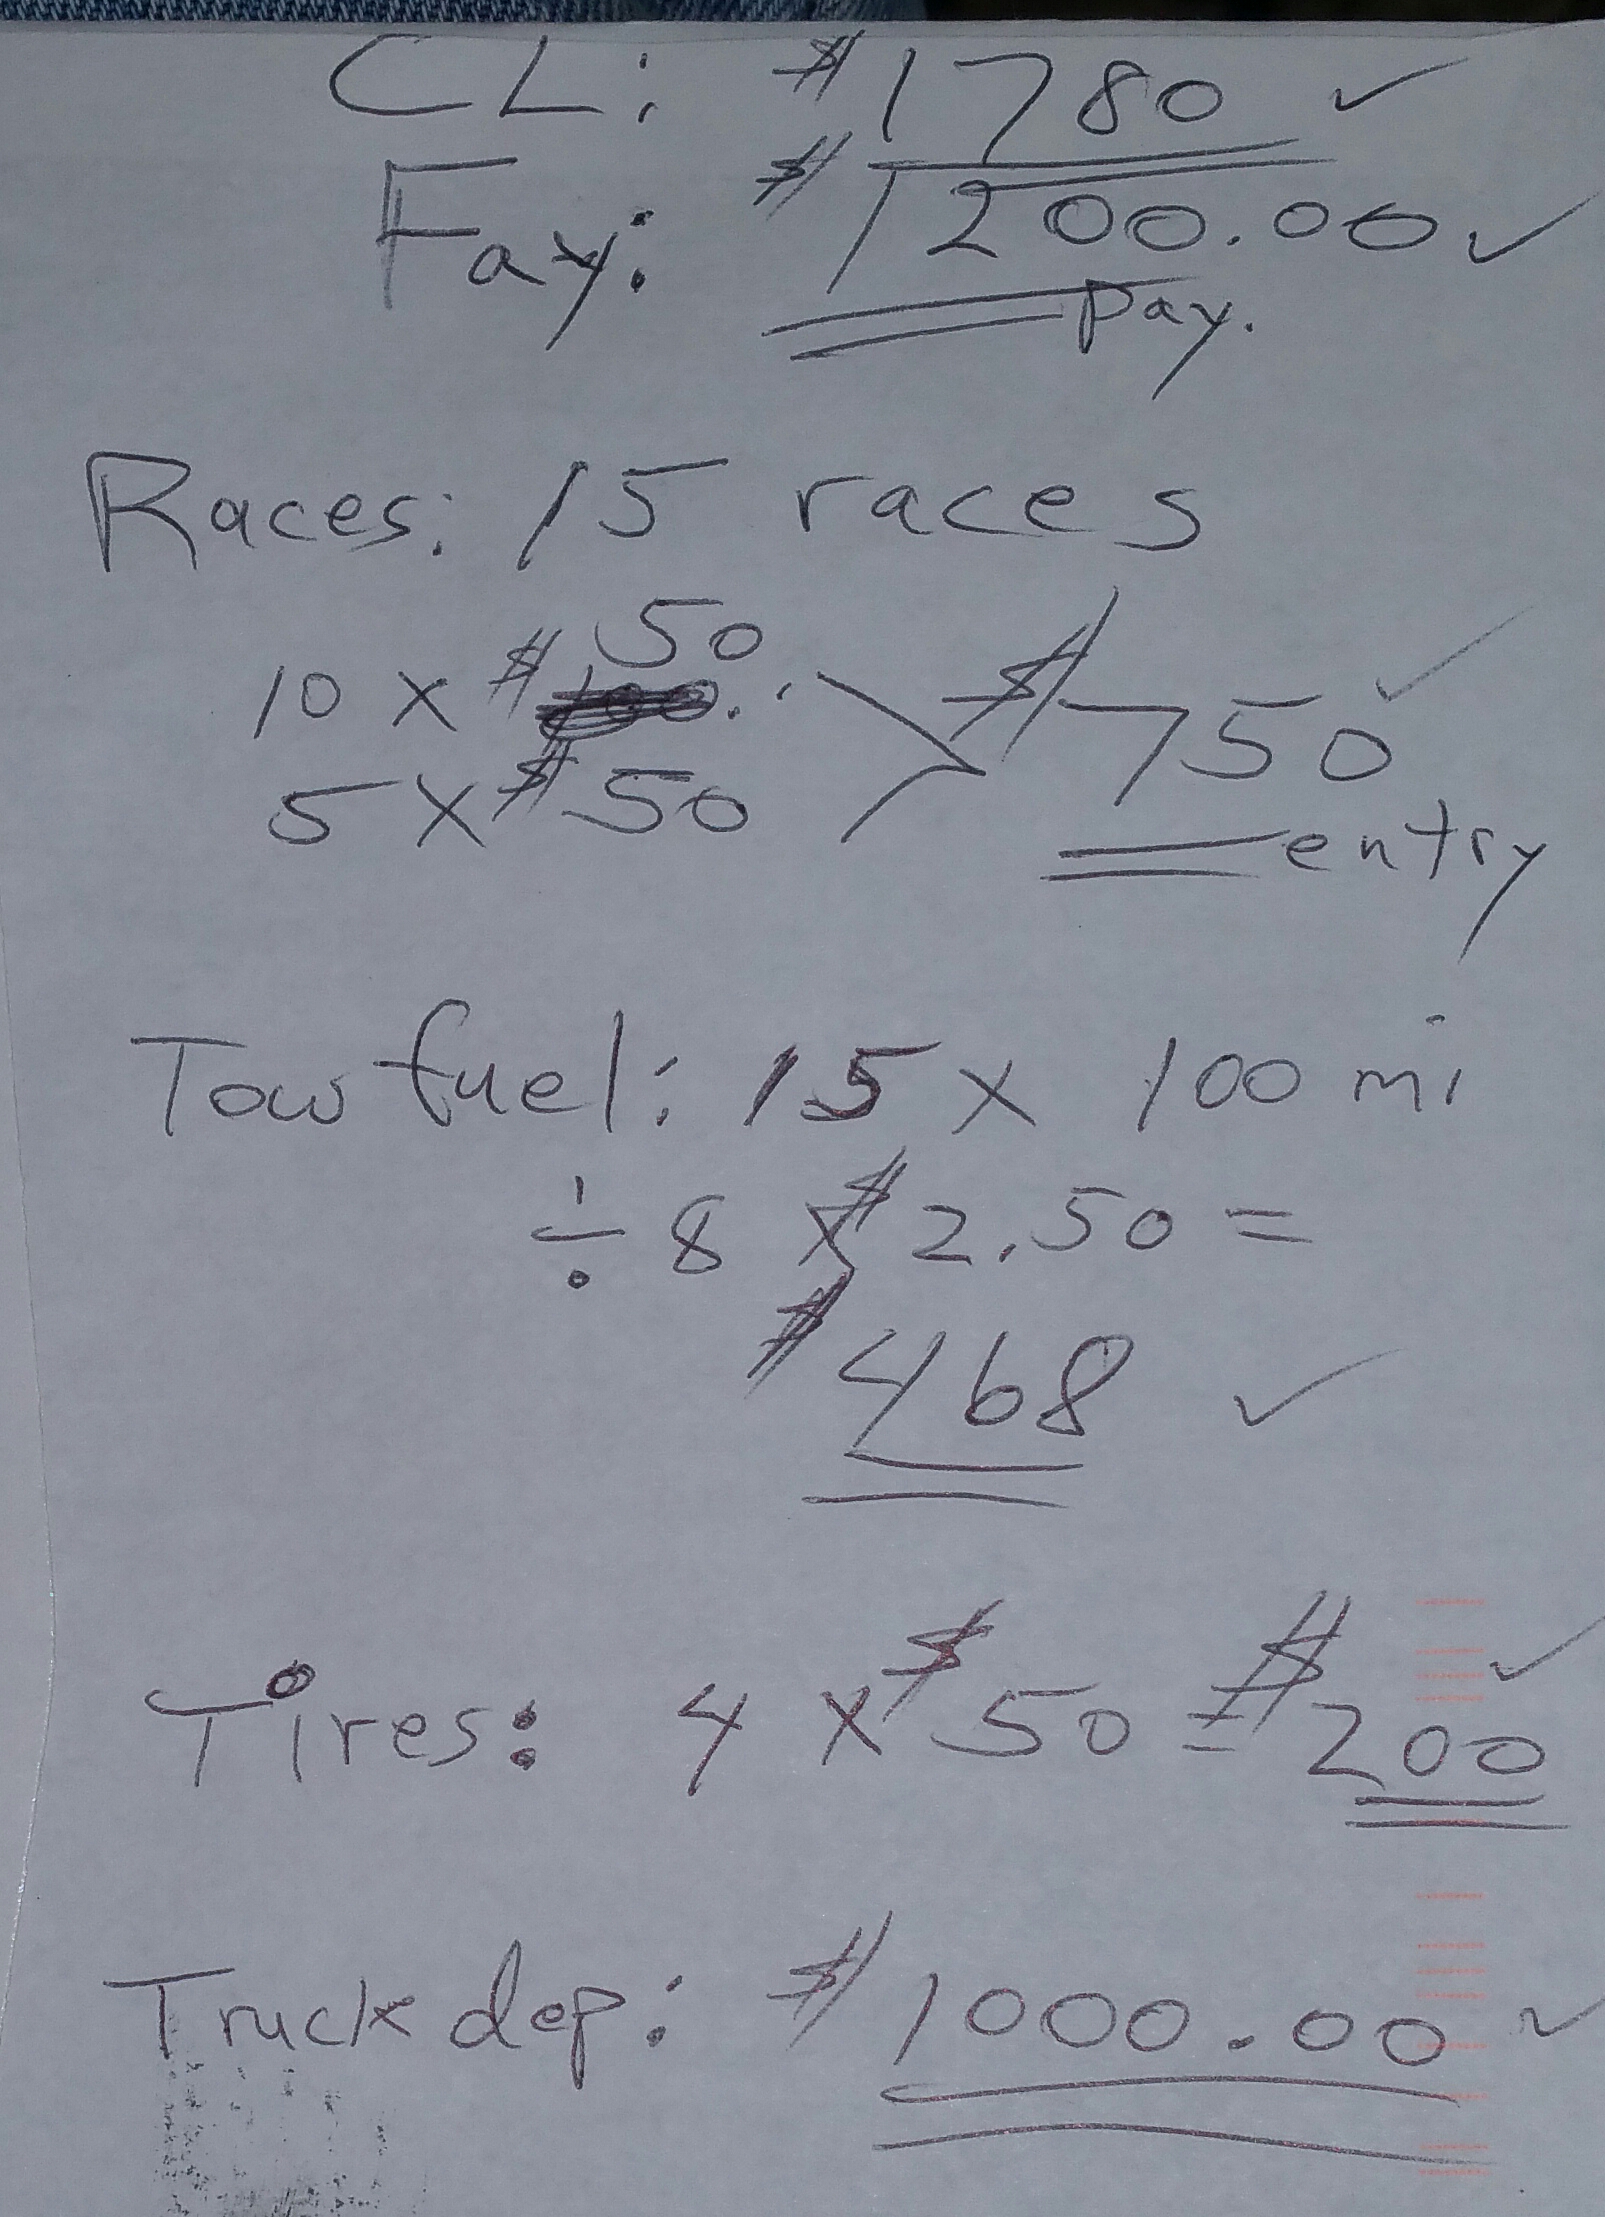 CL: $1780 ✓
Fay: $1200.00 ✓
pay.
Races: 15 races
50
10 x $100.
5 x $50
$750 ✓
entry
Tow fuel: 15 x 100 mi
÷ 8 x $2.50 =
$468 ✓
Tires: 4 x $50 = $200 ✓
Truck dep: $1000.00 ✓